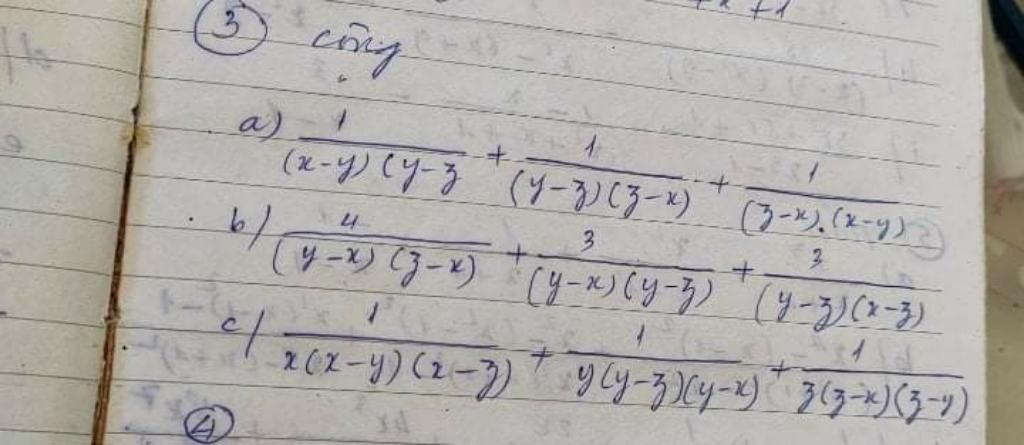 x+1
③ cộng
a) 1/((x-y)(y-z) + 1/((y-z)(z-x)) + 1/((z-x).(x-y))
b) 4/((y-x)(z-x)) + 3/((y-x)(y-z)) + 3/((y-z)(x-z))
c) 1/(x(x-y)(x-z)) + 1/(y(y-z)(y-x)) + 1/(z(z-x)(z-y))
④